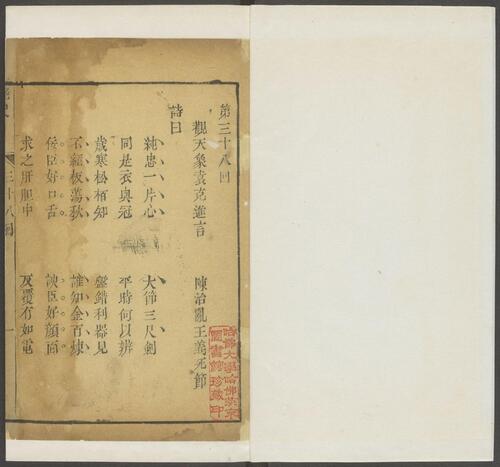 第三十八回
觀天象袁充進言　陳治亂王義死節
詩曰
純忠一片心　大節三尺劍
同是衣與冠　平時何以辨
歲寒松栢知　盤錯利器見
不經板蕩秋　誰知金百煉
佞臣好口舌　諛臣好顏面
求之肝胆中　反覆有如電
三十八回
一
哈佛大學哈佛燕京
圖書館珍藏印